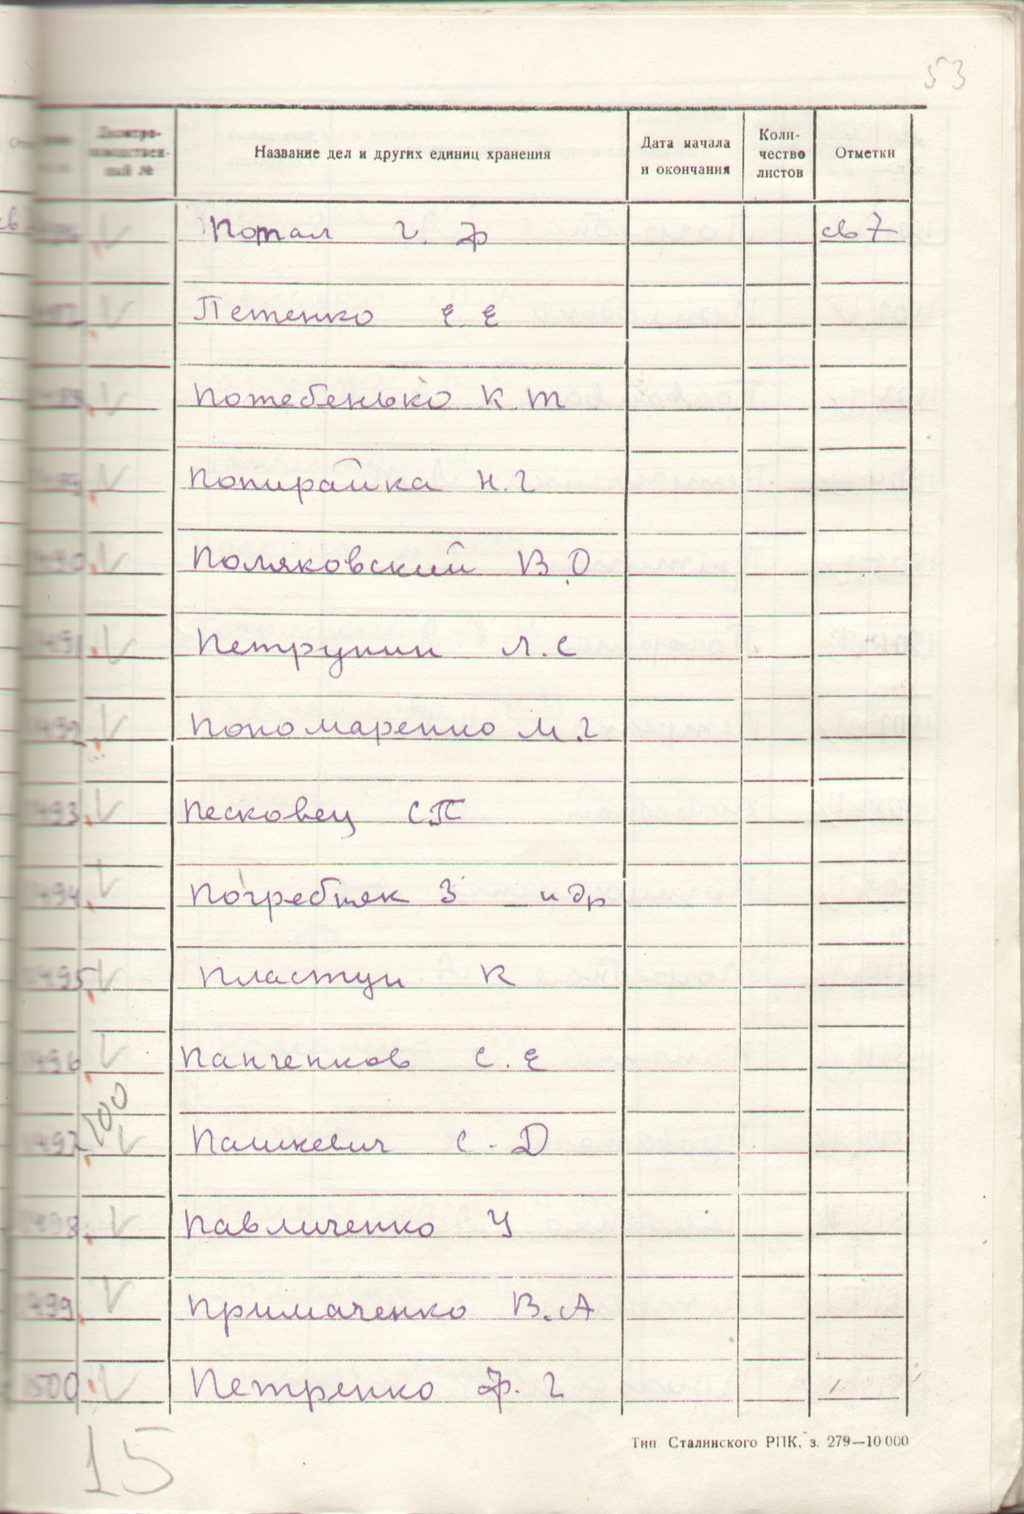 53
Делопро-
изводствен-
ный №
Название дел и других единиц хранения
Дата начала
и окончания
Коли-
чество
листов
Отметки
Потал Г. Ф св 7
Петенко Е. Е
Потебенько К. Т
Попирайка Н. Г
1490 Поляковский В. О
1491 Петрунин Л. С
1492 Пономаренко М. Г
1493 Песковец С П
1494 Погребняк З и др
1495 Пластун К
1496 Панченков С. Е
100
1497 Пашкевич С. Д
1498 Павличенко У
1499 Примаченко В. А
1500 Петренко Ф. Г
15
Тип Сталинского РПК, з. 279—10 000